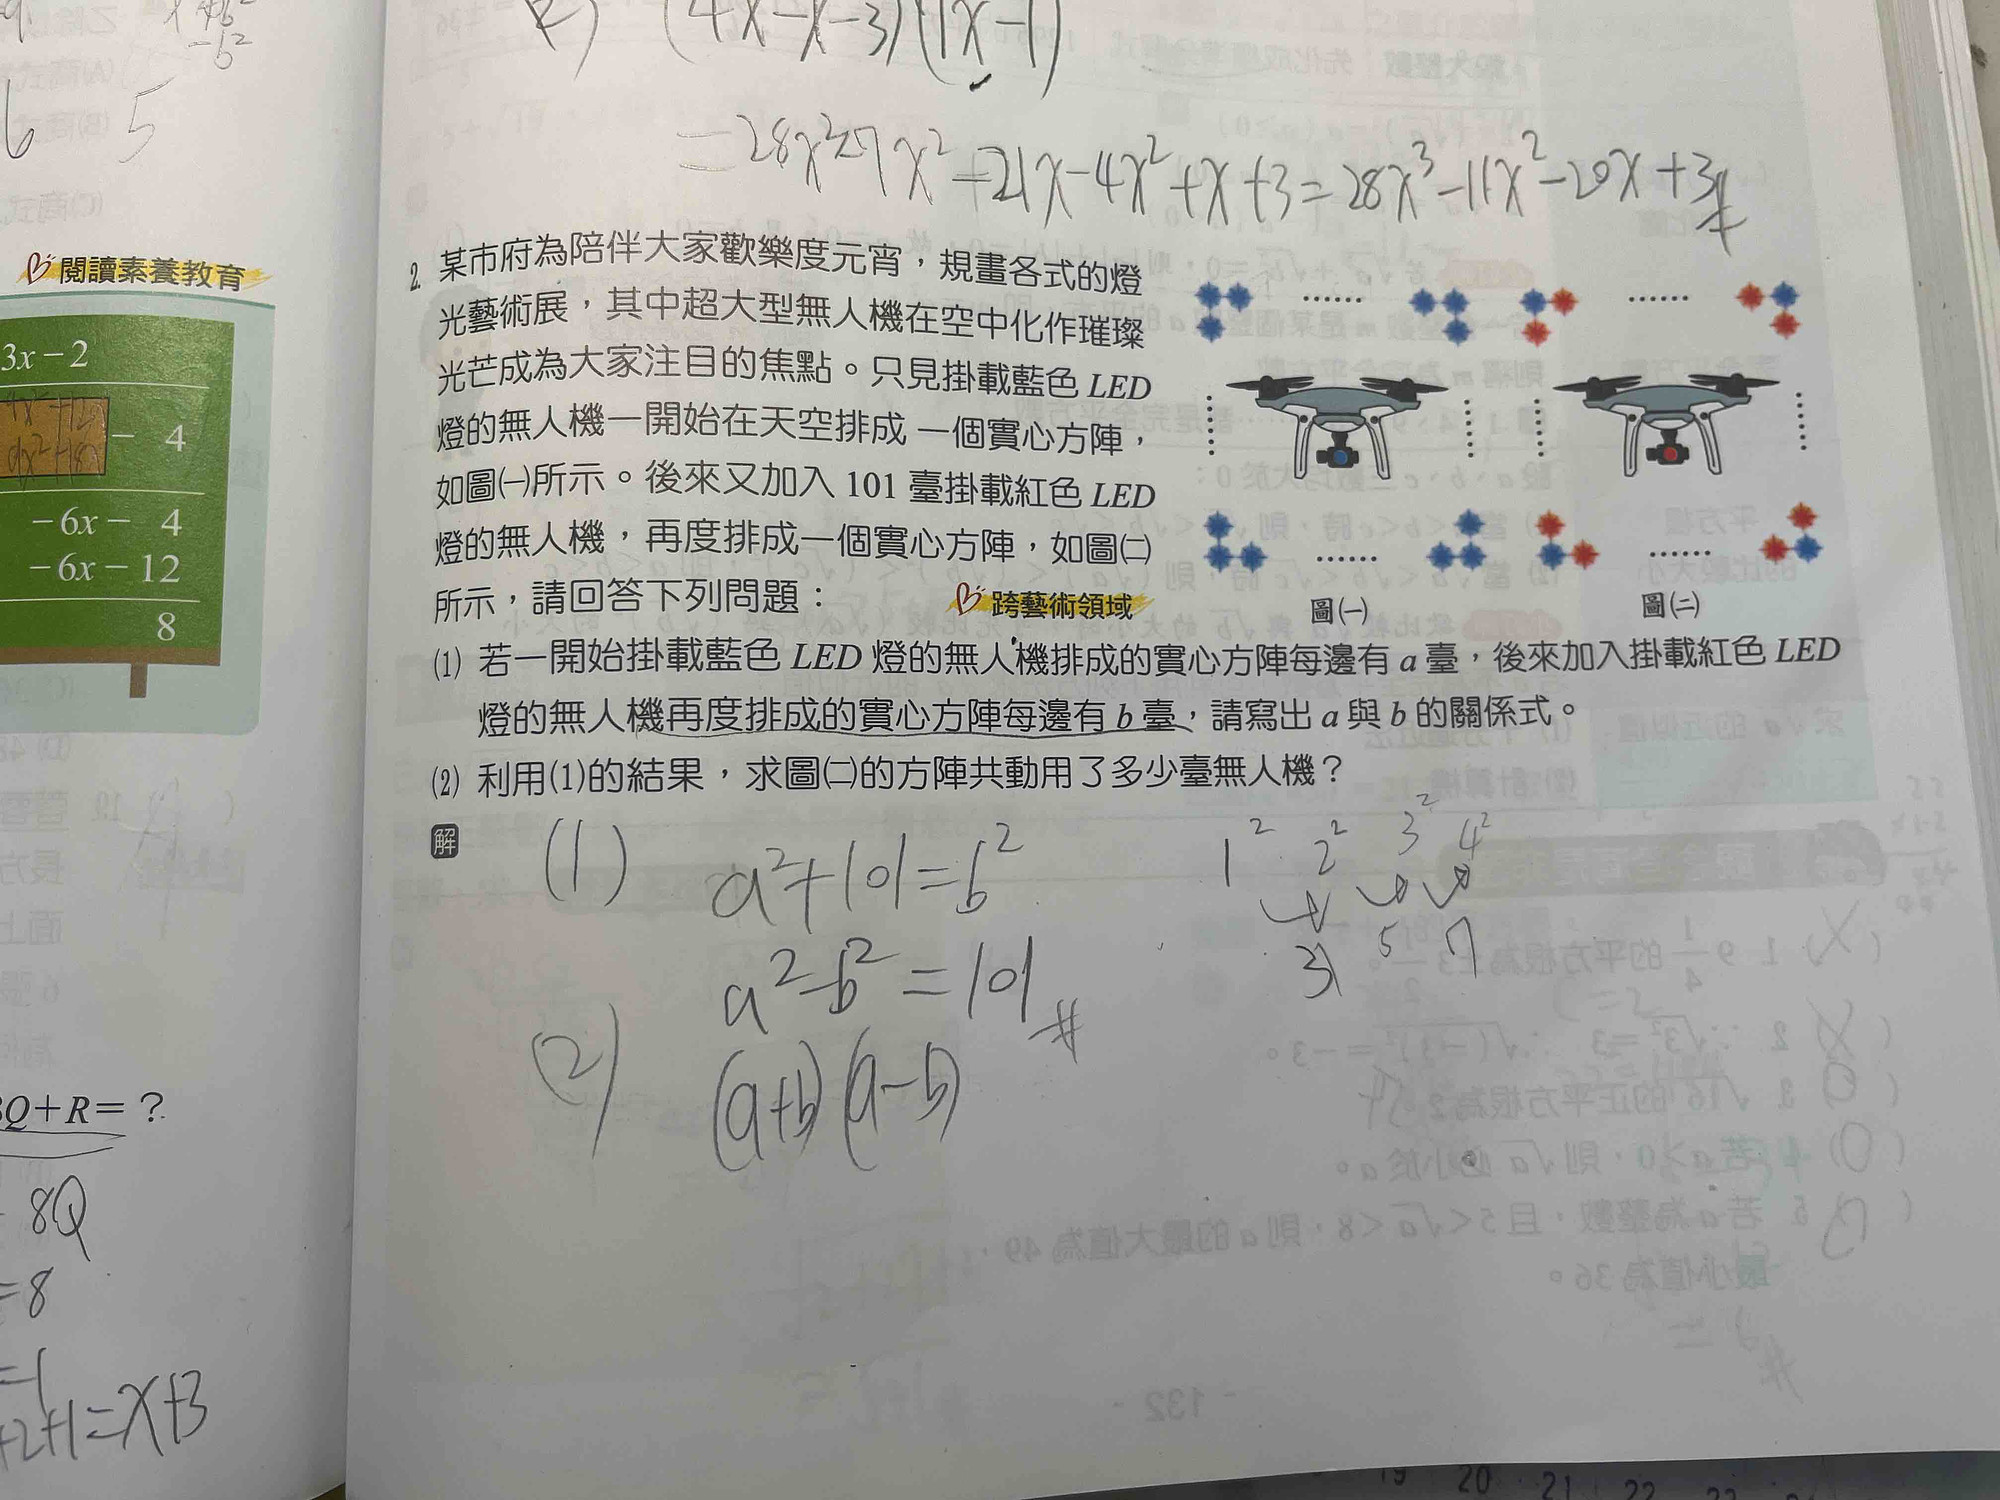 6 5
閱讀素養教育
3x－2
－ 4
－6x－ 4
－6x－12
8
Q＋R＝？
8Q
=8
=1
+2+1=x+3
(4x-x-3)(7x-1)
+21x-4x²+x+3=28x³-11x²-20x+3#
2. 某市府為陪伴大家歡樂度元宵，規畫各式的燈
光藝術展，其中超大型無人機在空中化作璀璨
光芒成為大家注目的焦點。只見掛載藍色 LED
燈的無人機一開始在天空排成 一個實心方陣，
如圖㈠所示。後來又加入 101 臺掛載紅色 LED
燈的無人機，再度排成一個實心方陣，如圖㈡
所示，請回答下列問題：
跨藝術領域
圖㈠ 圖㈡
⑴ 若一開始掛載藍色 LED 燈的無人機排成的實心方陣每邊有 a 臺，後來加入掛載紅色 LED
燈的無人機再度排成的實心方陣每邊有 b 臺，請寫出 a 與 b 的關係式。
⑵ 利用⑴的結果，求圖㈡的方陣共動用了多少臺無人機？
解
(1) a²+101=b²
a²-b²=101#
(2) (a+b)(a-b)
1² 2² 3² 4²
3 5 7
19 20 21 22